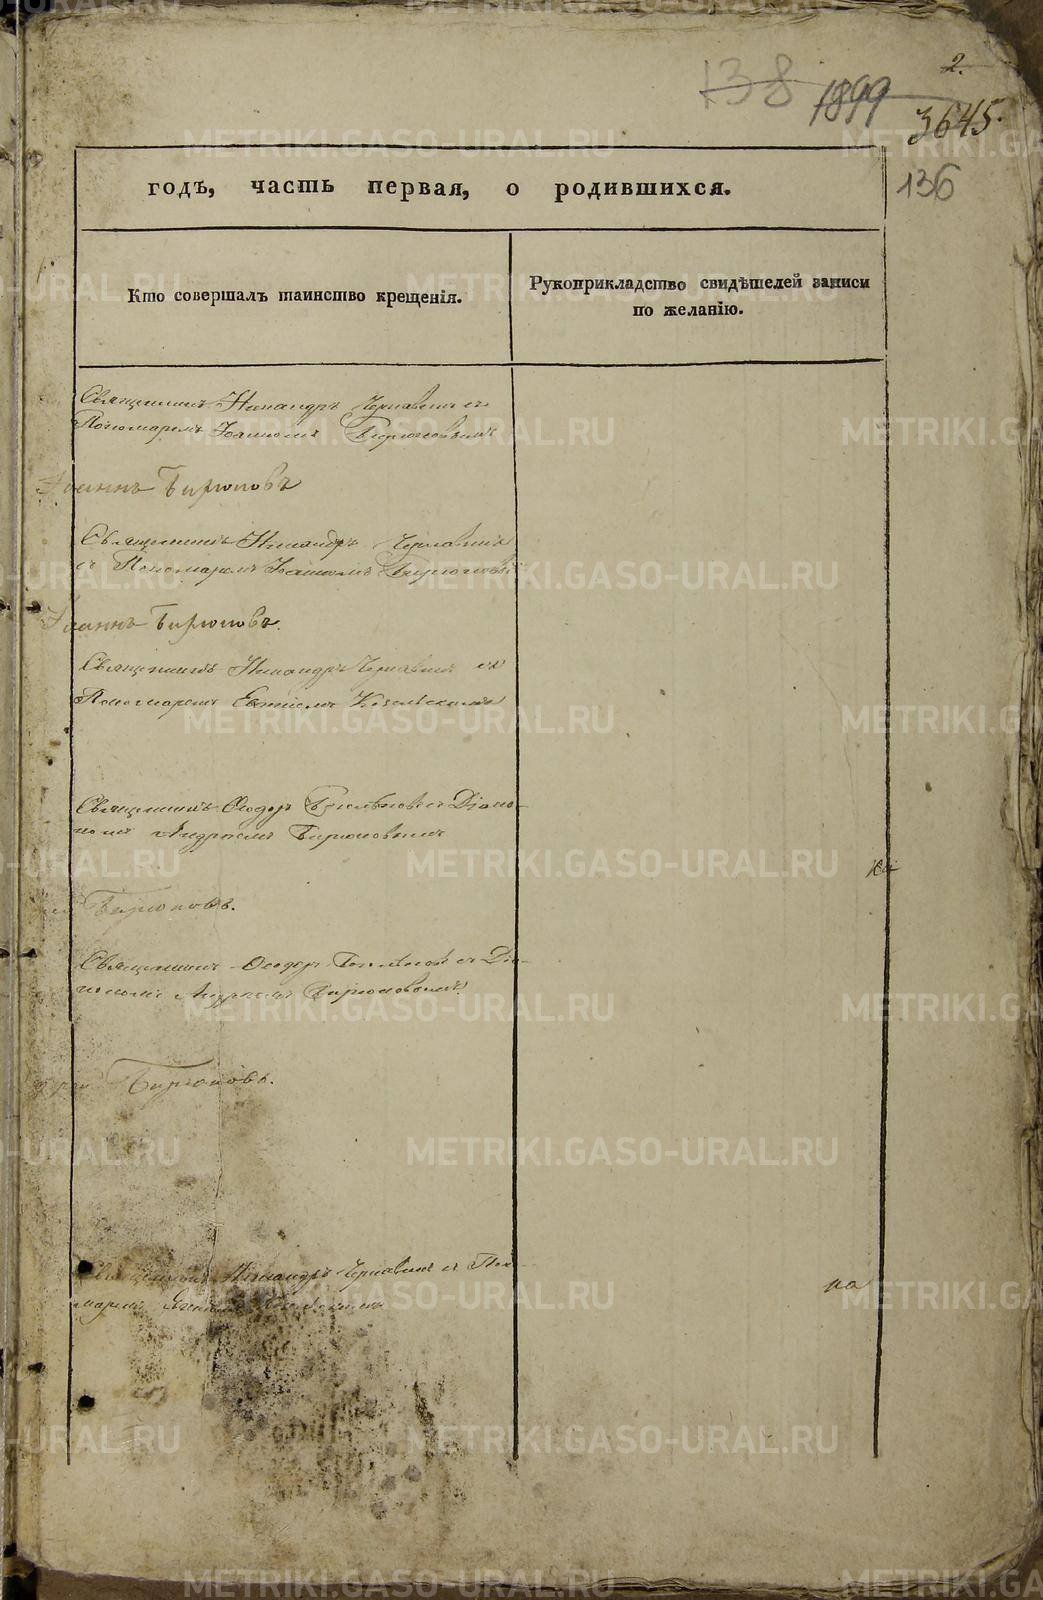 2.
138 1899
3645.
136
годъ, часть первая, о родившихся.
Кто совершалъ таинство крещенія.
Рукоприкладство свидѣтелей записи
по желанію.
Священникъ Никандръ Чернавинъ съ
Пономаремъ Іоанномъ Бирюковымъ
Іоаннъ Бирюковъ
Священникъ Никандръ Чернавинъ
съ Пономаремъ Іоанномъ Бирюковы
Іоаннъ Бирюковъ.
Священникъ Никандръ Чернавинъ съ
Пономаремъ
Священникъ Ѳеодоръ съ Діако-
номъ Андреемъ Бирюковымъ
Бирюковъ.
Священникъ Ѳеодоръ съ Діа-
кономъ Андреемъ Бирюковымъ.
Бирюковъ.
Священникъ Никандръ Чернавинъ съ Поно-
маремъ
METRIKI.GASO-URAL.RU